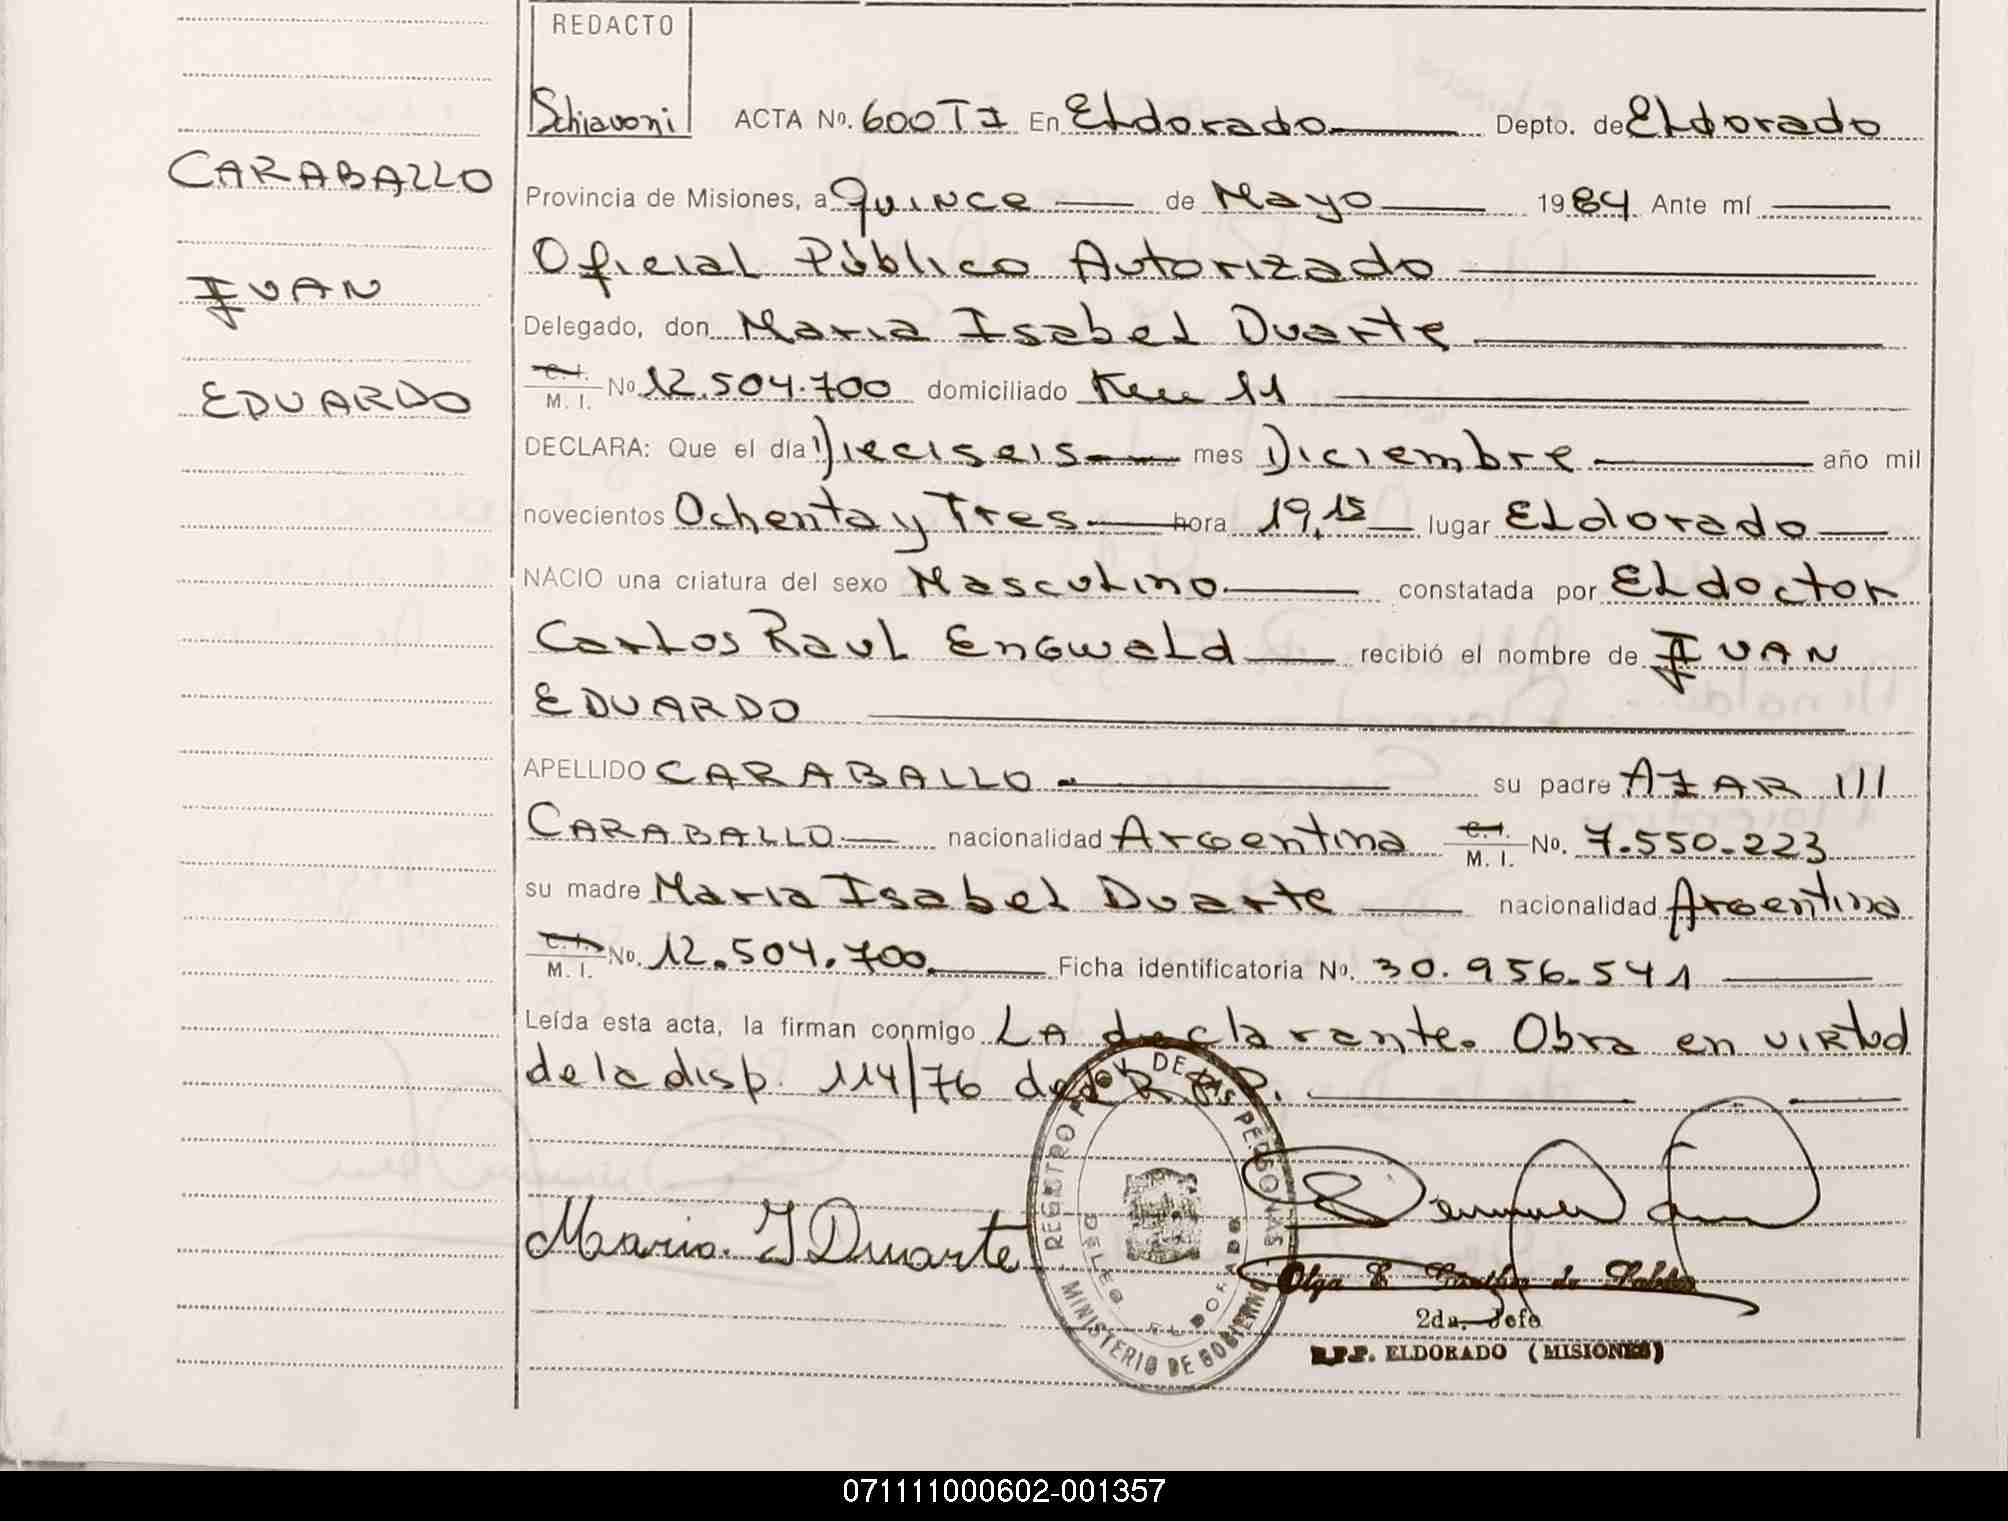 REDACTO
Schiavoni
ACTA Nº. 600 T I En Eldorado Depto. de Eldorado
CARABALLO
Provincia de Misiones, a Quince de Mayo 1984 Ante mí
Oficial Público Autorizado
JUAN
Delegado, don Maria Isabel Duarte
EDUARDO
C. I. M. I. Nº 12.504.700 domiciliado Km 11
DECLARA: Que el día Dieciseis mes Diciembre año mil
novecientos Ochenta y Tres hora 19,15 lugar Eldorado
NACIO una criatura del sexo Masculino constatada por El doctor
Carlos Raul Engwald recibió el nombre de JUAN
EDUARDO
APELLIDO CARABALLO su padre AZAR III
CARABALLO nacionalidad Argentina C. I. M. I. Nº. 7.550.223
su madre Maria Isabel Duarte nacionalidad Argentina
C. I. M. I. Nº. 12.504.700 Ficha identificatoria Nº. 30.956.541
Leída esta acta, la firman conmigo LA declarante. Obra en virtud
de la disp. 114/76 del R.P.P.
Maria I Duarte
REGISTRO PROV. DE LAS PERSONAS
DELEG. ELDORADO
MINISTERIO DE GOBIERNO
Olga E. de
2da. Jefe
R.P.P. ELDORADO (MISIONES)
071111000602-001357